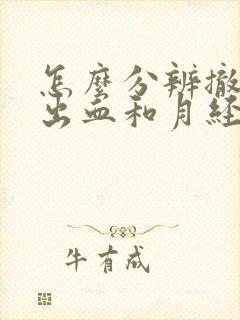 怎麼分辨撤
出血和月經
牛有成